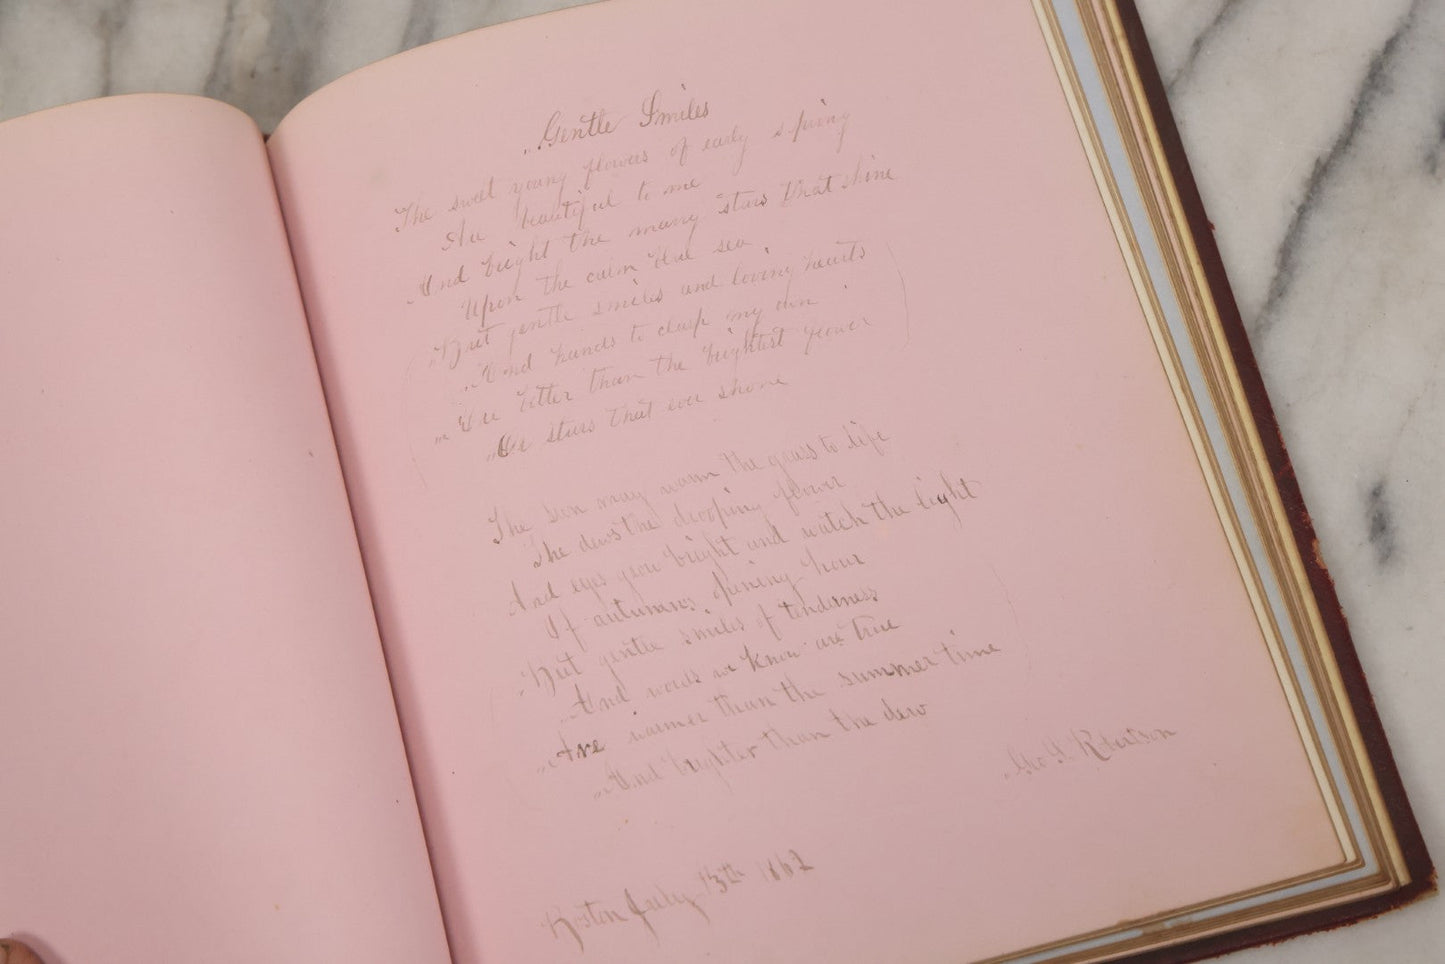 Gentle Smiles
The sweet young flowers of early spring
Are beautiful to me
And bright the many stars that shine
Upon the calm blue sea.
"But gentle smiles and loving hearts
"And hands to clasp my own
"Are better than the brightest flower
"Or stars that ever shone
The sun may warm the grass to life
The dews the drooping flower
And eyes grow bright and watch the light
Of autumns opening hour
"But gentle smiles of tenderness
"And words we know are true
"Are warmer than the summer time
"And brighter than the dew
Robertson
Boston July 13th 1862